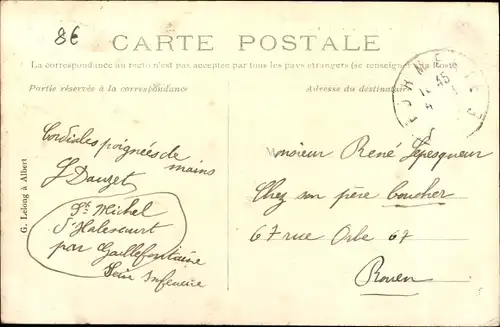 8€
CARTE POSTALE
La correspondance au recto n'est pas acceptée par tous les pays étrangers (se renseigner à la Poste)
Partie réservée à la correspondance
Adresse du destinataire
Cordiales poignées de
mains
J Dauzet
St Michel
d'Halescourt
par Gaillefontaine
Seine Inférieure
G. Lelong à Albert
Monsieur René Lepesqueur
Chez son père boucher
67 rue Orbe 67
Rouen